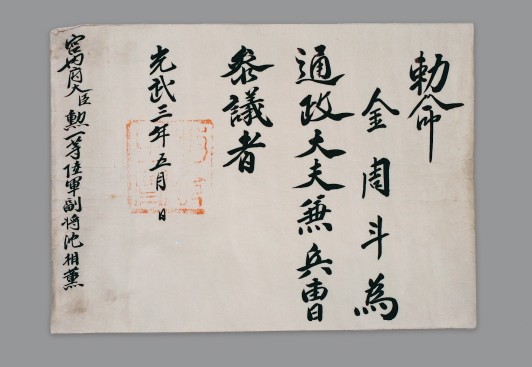 勅命
金周斗為
通政大夫兼兵曺
叅議者
光武三年五月 日
宮內府大臣 勲一等陸軍副將沈相薰